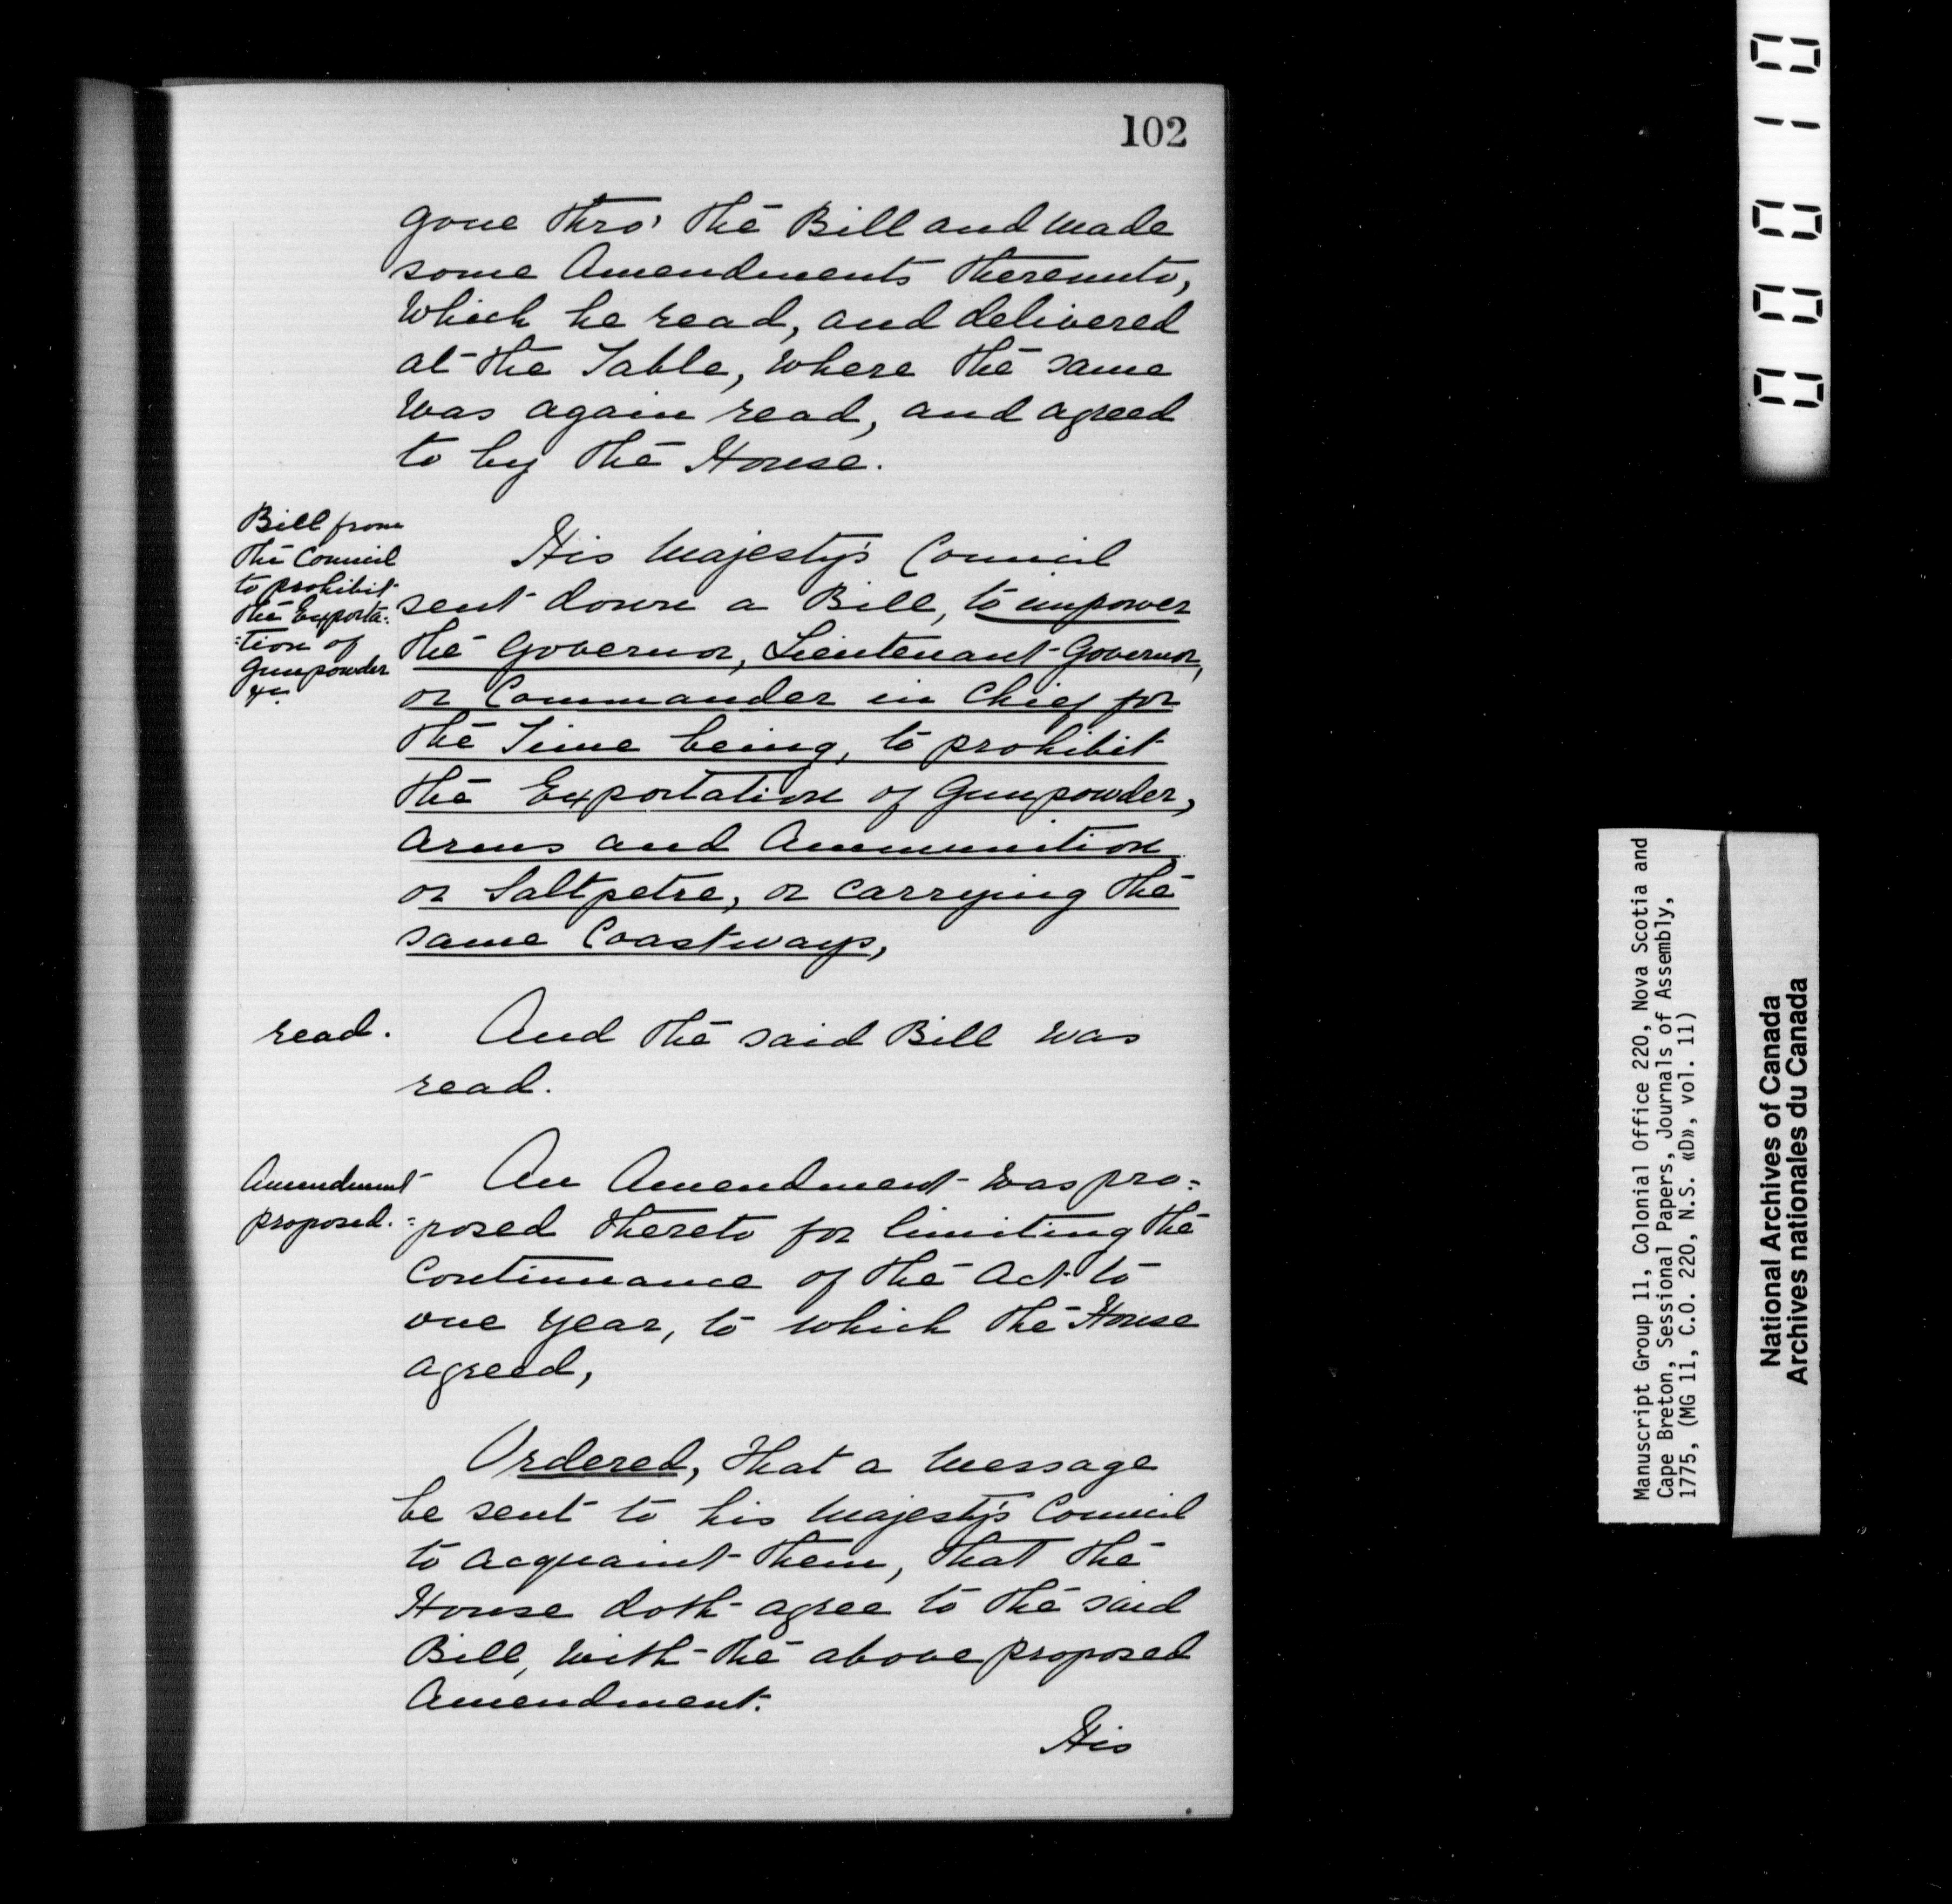 102
gone thro' the Bill and made
some Amendments thereunto,
which he read, and delivered
at the Table, where the same
was again read, and agreed
to by the House.
Bill from
the Council
to prohibit
the Exporta=
=tion of
Gunpowder
&c.
His Majesty's Council
sent down a Bill, to impower
the Governor, Lieutenant-Governor,
or Commander in Chief for
the Time being, to prohibit
the Exportation of Gunpowder,
Arms and Ammunition
or Saltpetre, or carrying the
same Coastways,
read.
And the said Bill was
read.
Amendment
proposed.
An Amendment was pro=
=posed thereto for limiting the
Continuance of the Act to
one year, to which the House
agreed,
Ordered, that a Message
be sent to his Majesty's Council
to acquaint them, that the
House doth agree to the said
Bill, with the above proposed
Amendment.
His
00010
Manuscript Group 11, Colonial Office 220, Nova Scotia and
Cape Breton, Sessional Papers, Journals of Assembly,
1775, (MG 11, C.O. 220, N.S. «D», vol. 11)
National Archives of Canada
Archives nationales du Canada